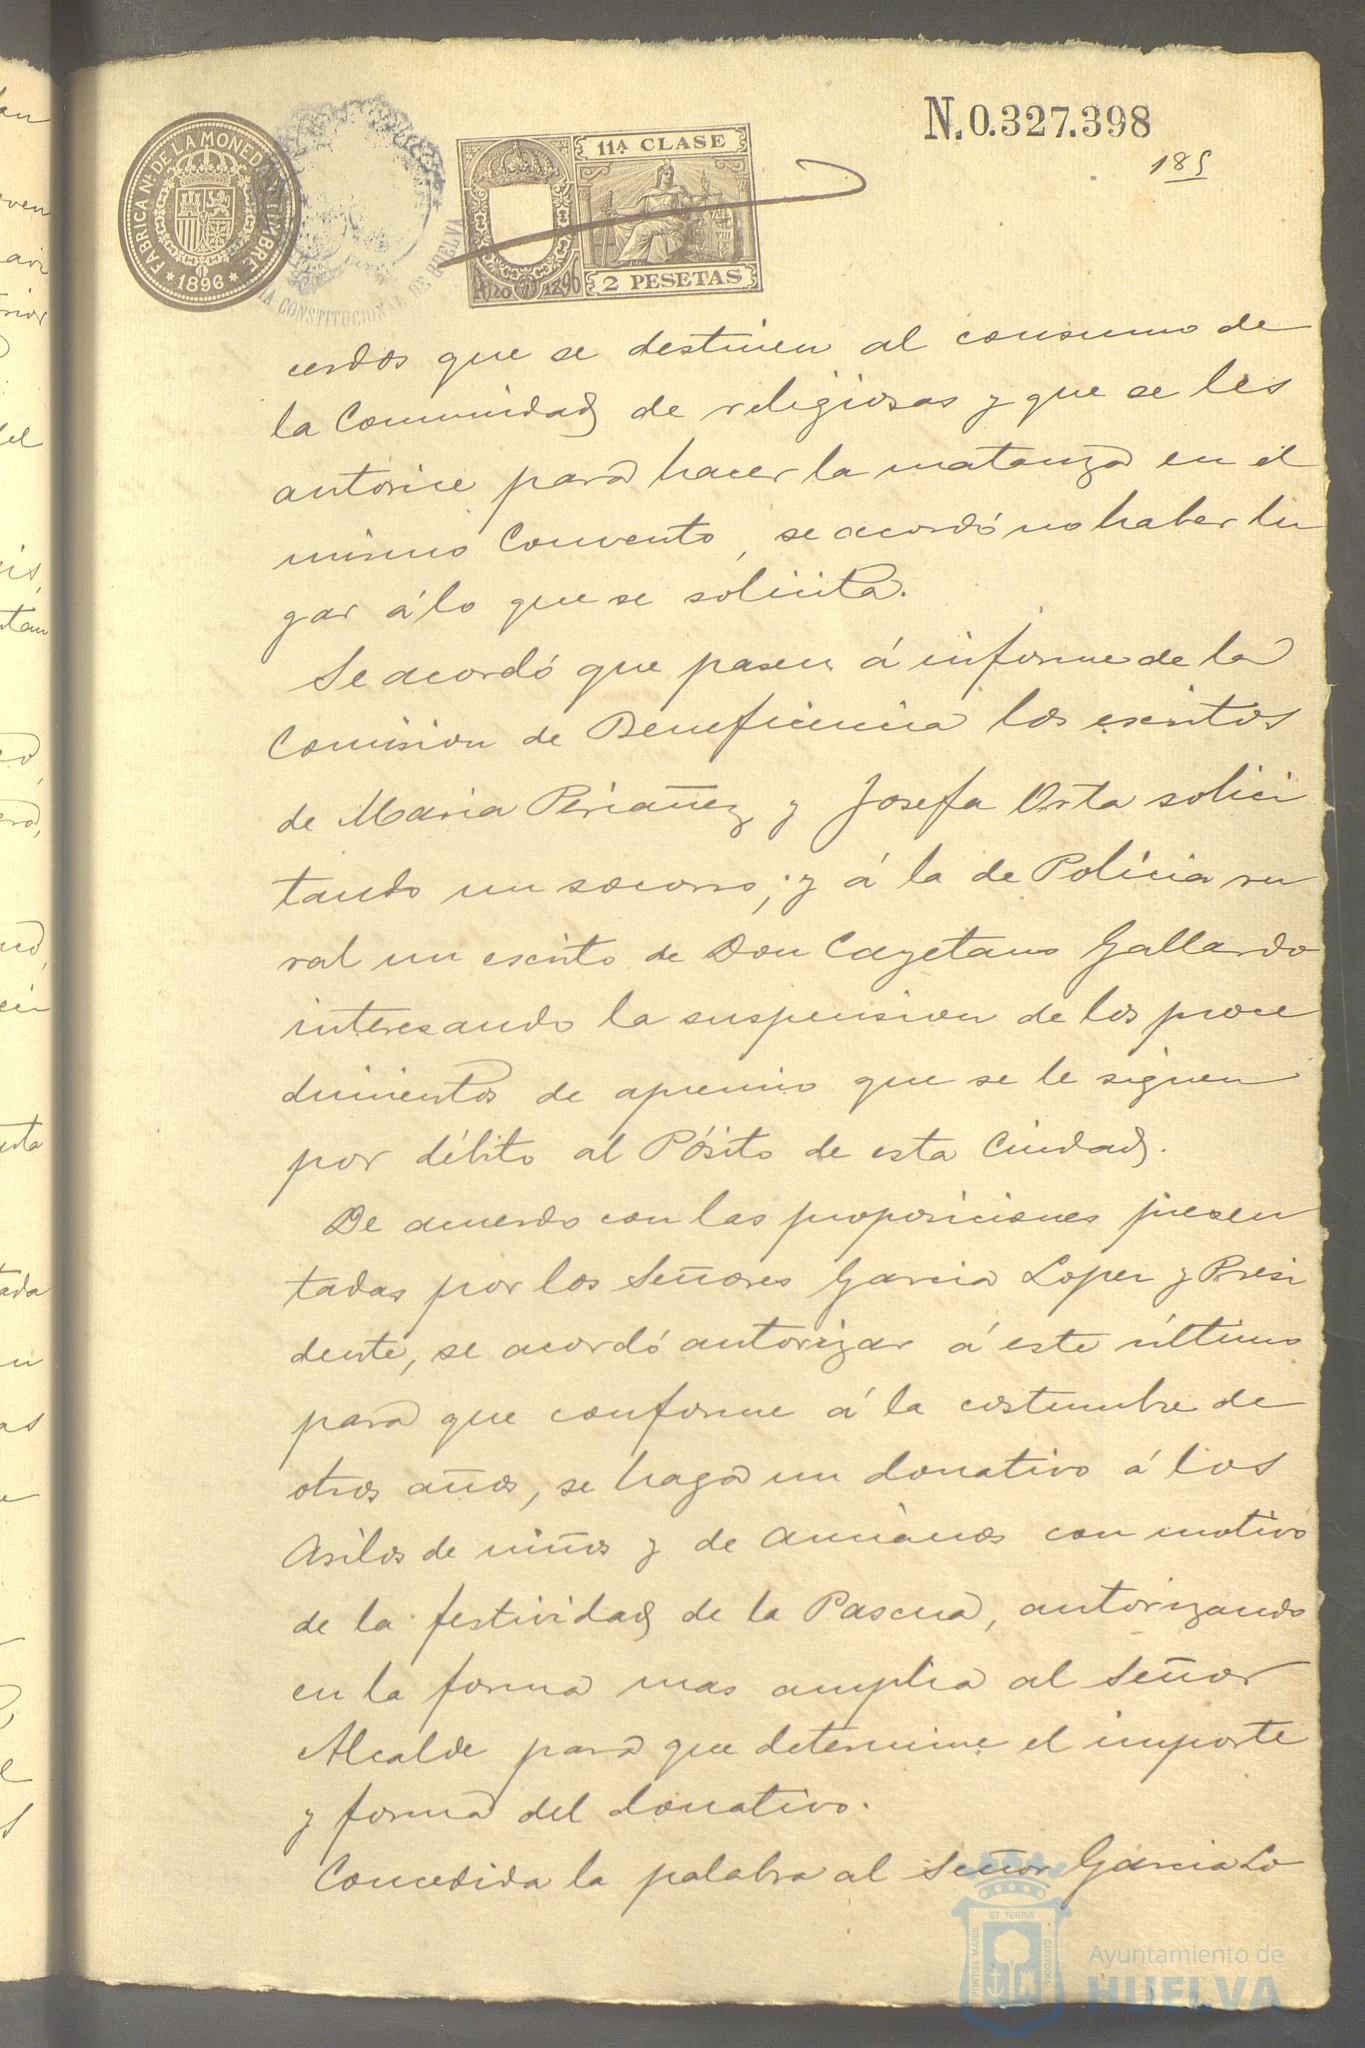 N. 0.327.398
185
FABRICA Nl. DE LA MONEDA Y TIMBRE
* 1896 *
CONSTITUCIONAL DE HUELVA
11ª CLASE
2 PESETAS
1896
cerdos que se destinen al consumo de
la Comunidad de religiosas y que se les
autorice para hacer la matanza en el
mismo Convento, se acordó no haber lu
gar á lo que se solicita.
Se acordó que pasen á informe de la
Comision de Beneficencia los escritos
de Maria Periañez y Josefa Orta solici
tando un socorro; y á la de Policia ru
ral un escrito de Don Cayetano Gallardo
interesando la suspension de los proce
dimientos de apremio que se le siguen
por débito al Pósito de esta Ciudad.
De acuerdo con las proposiciones presen
tadas por los Señores Garcia Lopez y Presi
dente, se acordó autorizar á este último
para que conforme á la costumbre de
otros años, se haga un donativo á los
Asilos de niños y de Ancianos con motivo
de la festividad de la Pascua, autorizando
en la forma mas amplia al Señor
Alcalde para que determine el importe
y forma del donativo.
Concedida la palabra al Señor Garcia Lo
Ayuntamiento de
HUELVA